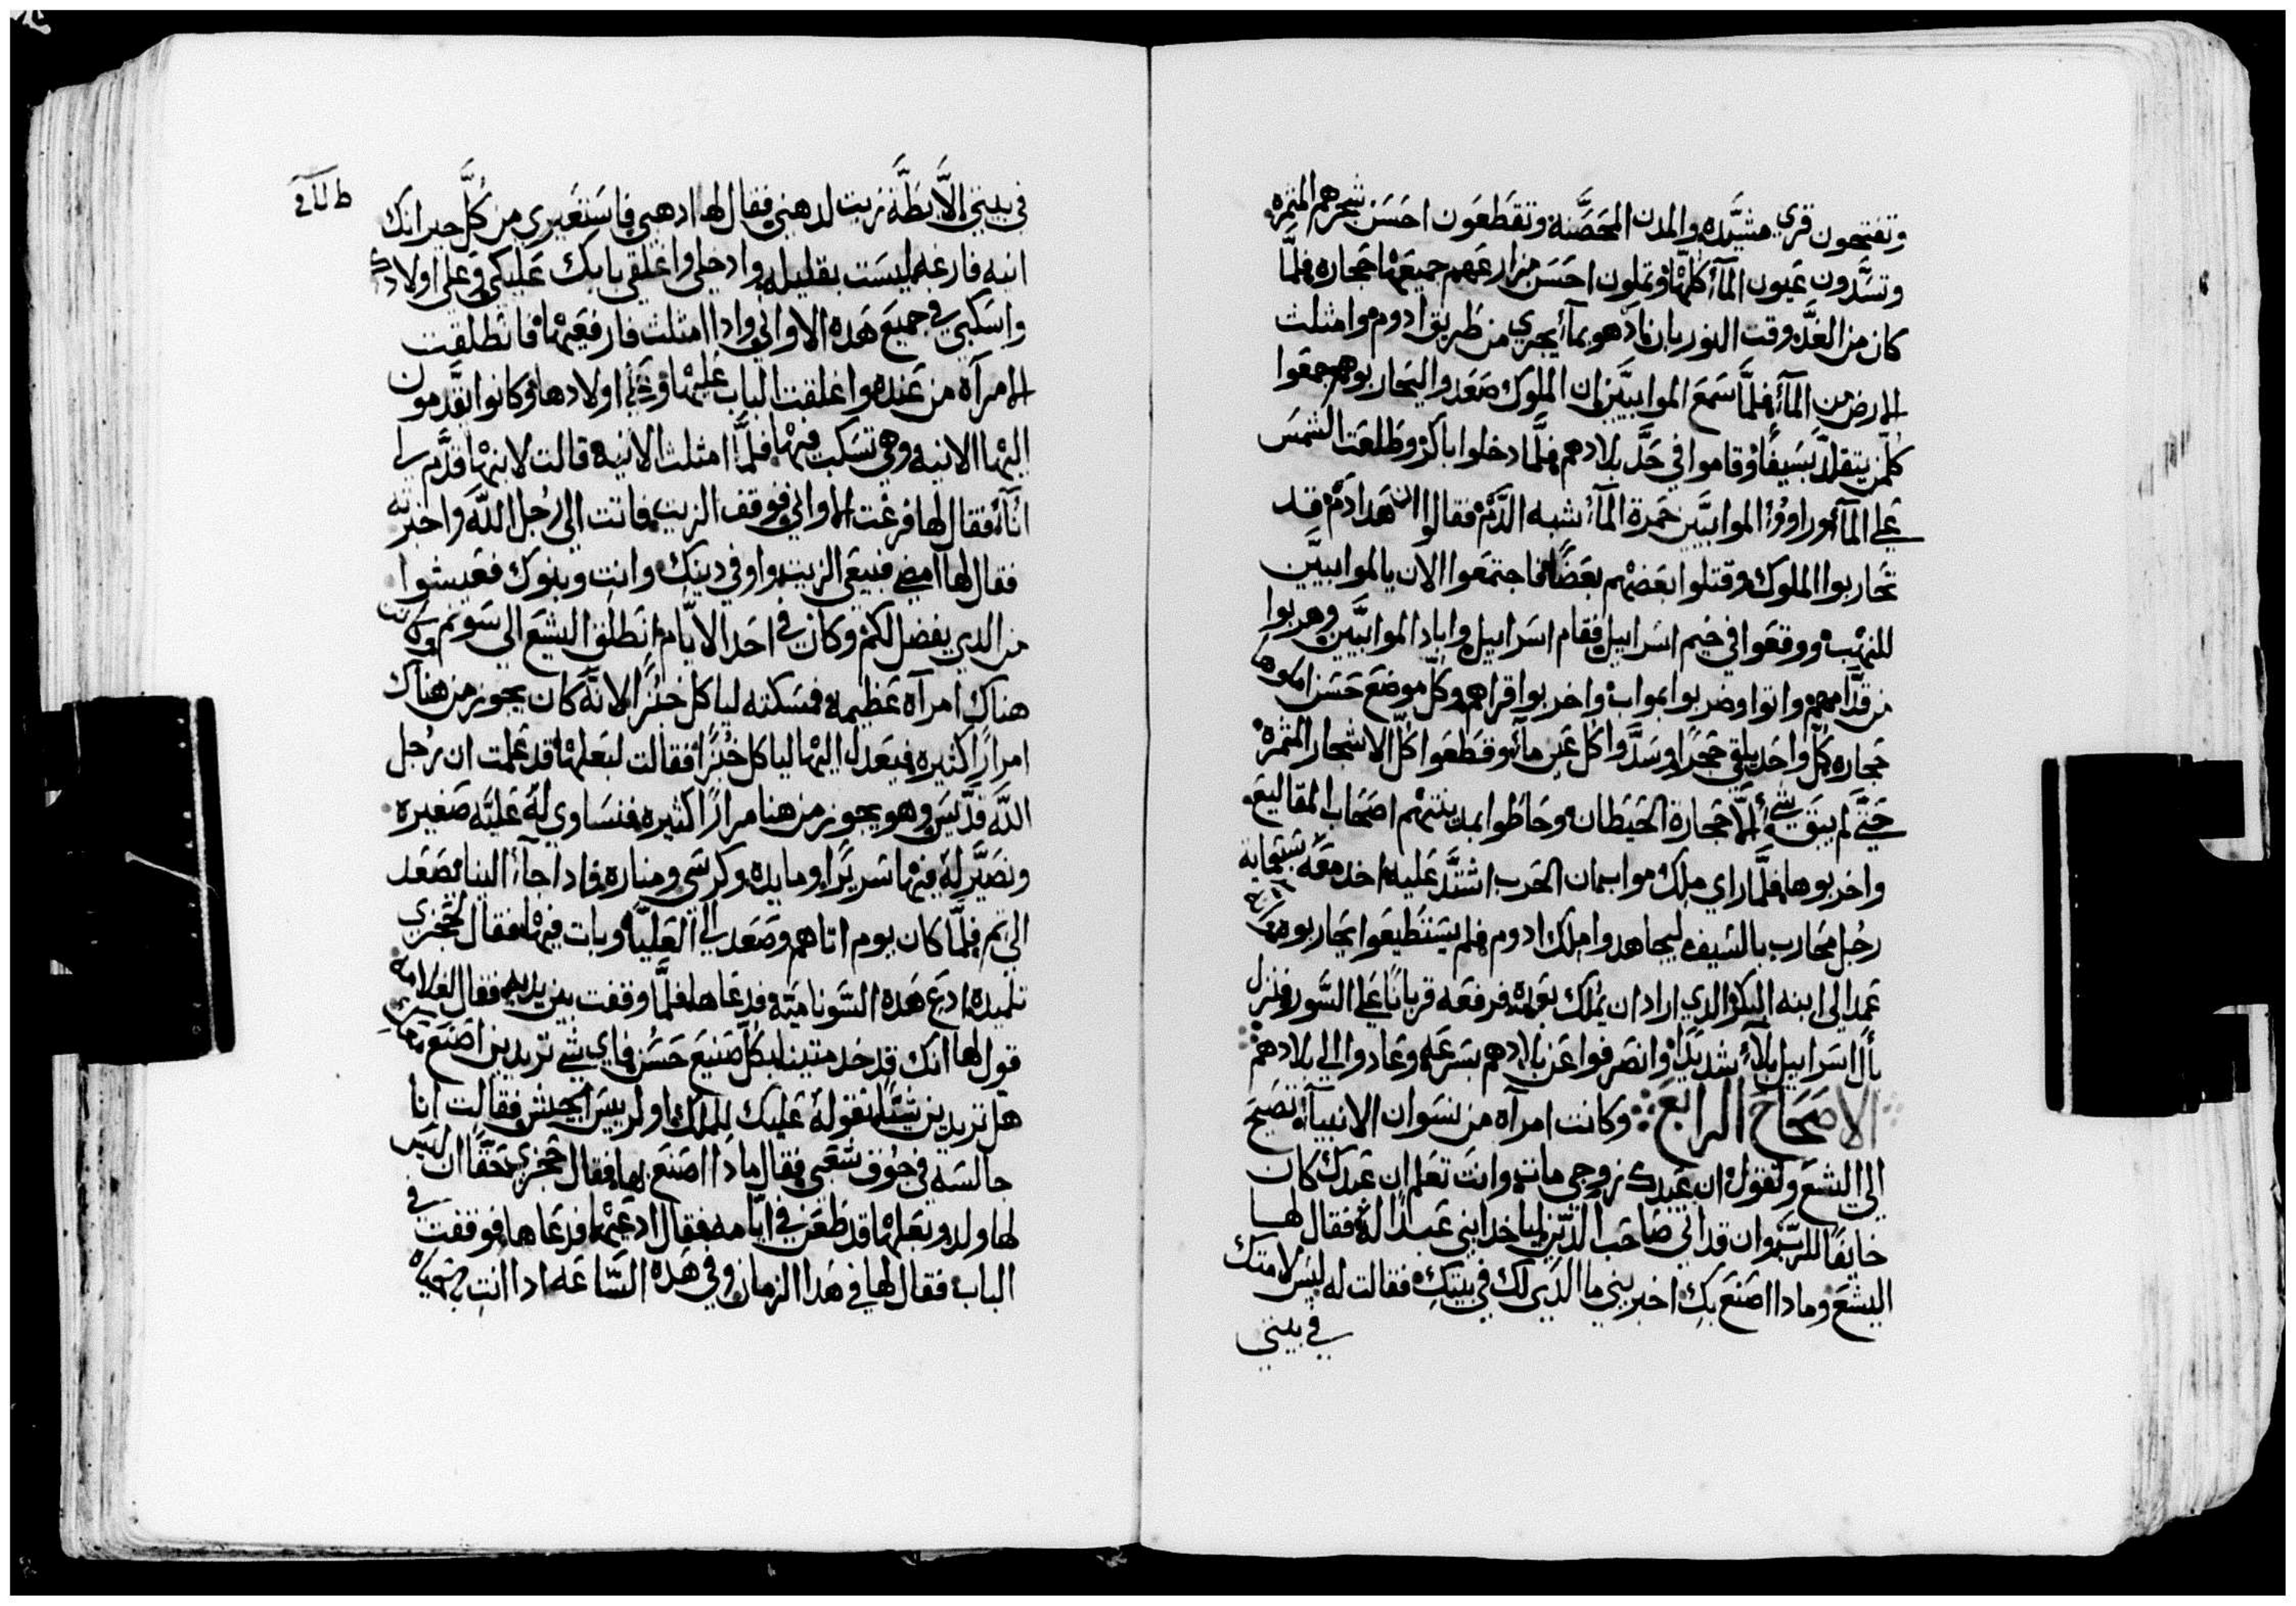 وتفتحون قري مشيّده والمدن المحَصَّنة وتقطعَون احسَن شجرهم المثمره
وتسَّدون عَيون المآء كلهّا وتملون احسَن مزارعَهم جميعَهْا حَجاره فلمَّا
كان من الغدَّ وقت النور بان نادهو بمآء يجري من طَريق ادوم وامثلث
الارض من المآء فلمَّا سَمعَ الموابيّين ان الملوك صَعَدو اليحاربوهم جمعَوا
كلمن يتقلدّ بسَيفًا وقاموا في حَدّ بلادهم فلمَّا دخلوا باكرْ وطَلعَت الشمسَ
عَلي المآء وراووْا الموابيَّين حَمرة المآء شبه الدَّمْ فقالوا ان هَدا دَمْ قد
تحاربوا الملوك وقتلوا بعَضهْم بعَضًا فاجتمعَوا الان يالموابييَّن
للنهْب ووقعَوا في خيم اسَراييل فقام اسَراييل واباد الموابيَّين وهربوا
من قدَّامهمْ واتوا وضربوا بمواب واخربوا قراهم وكلّ موضعَ حَسَن املوها
حَجاره كلّ واحَد يلقي حَجرًا وسَدَّوا كل عَين مآء وقطَعَوا كلّ الاشجار المثمرة
حَتّي لم يبَق شي الَّا حَجارة الحَيطان وحَاطَوا بمدينتهْم اصَحَاب المقاليعَ
واخربوها فلمَّا راي ملك مواب بان الحَرب اشتدَّ عَليه اخد معَه سَبعَماية
رجُل محَارب بالسَيف ليجاهدوا ملك ادوم فلم يسَتطَيعَوا يحَاربوه
عَمد الي ابنه البكر الدي اراد ان يملك بعَده فرفعَه قربانًا عَلي السَّور فنزل
بأل اسَراييل بلآء شديدًا وانصَرفوا عَن بلادهم بسَرعَه وعَادوا الي بلادهمْ
الاصَحَاح الرابعَ وكانت امرآه من نسَوان الانبيآء تصَيحَ
الي اليشعَ وتقول ان عَبدك زوجي مات وانت تعَلم ان عَبدك كان
خايفًا للربّ وان قد اتي صَاحَب الدَّين لياخد ابني عَبدًا له فقال لهـا
اليشعَ ومادا اصَنعَ بكِ اخبريني ما الدَي لك في بيتكِ فقالت له ليسَ لامتك
في بيتي
في بيتي الَّا بطَّة زيت لدهني فقال لها ادهبي فاسَتعَيري من كُلَّ جيرانك
انيه فارغه ليسَت بقليله وادخلي واغلقي بابك عَليكي وعَلي اولادك
واسَكبي في جميعَ هَده الاواني وادا امثلث فارفعَيهْا فانطلقت
الامرآه من عَنده واغلقت الباب عَليهْا وعَلي اولادها وكانوا يقَدمون
اليهْا الانيه وهي تسَكب فيهْا فلمَّا امثلث الانيه قالت لابنهْا قدَّم لي
انآء فقال لها فرغت الاواني فوقف الزيت فاتت الي رُجل اللَّه واخبرته
فقال لها امضي فبيعَي الزيت واوفي دينكِ وانتِ وبنوك فعَيشوا
من الدي يفضل لكمْ وكان في احَد الايَّام انطَلق اليشعَ الي سَونم وكانت
هناك امرآه عَظيمة فمسَكته لياكل خبُزًا لانَّه كان يجوز من هناك
امرارًا كثيره فيعَدل اليهْا لياكل خبُزًا فقالت لبعَلهْا قد عَلمت ان رُجل
اللَّه قدَّيسَ وهو يجوز من هنا مرارًا كثيره فنسَاوي لهُ عَليّه صَغيره
ونصَيَّر لهُ فيهْا سَريرًا ومايده وكرسَي ومناره فادا جآء الينا يصَعَد
الي ثم فلمَّا كان يوم اتاهم وصَعَد الي العَليَّه وبات فيهْا فقال لحَجزي
تلميده ادعَ هَده السَّوناميَّة فدعَاها فلمَّا وقفت بين يديه فقال لغلامه
قول لها انك قد خدمتينا بكلّ صَنيعَ حَسَن فاي شي تريدين اصَنعَ معَكِ
هل تريدين شيًّا نقولهُ عَليك للملك او لرييسَ الجيش فقالت انا
جالسَة في جوُف شعَبي فقال مادا اصَنعَ لها فقال حَجزي حَقًّا ان ليسَ
لها ولد وبعَلهْا قد طَعَن في ايَّامه فقال ادعَيهْا فدعَاها فوقفت في
الباب فقال لها في هَدا الزمان وفي هَده السَّاعَه ادا انتِ